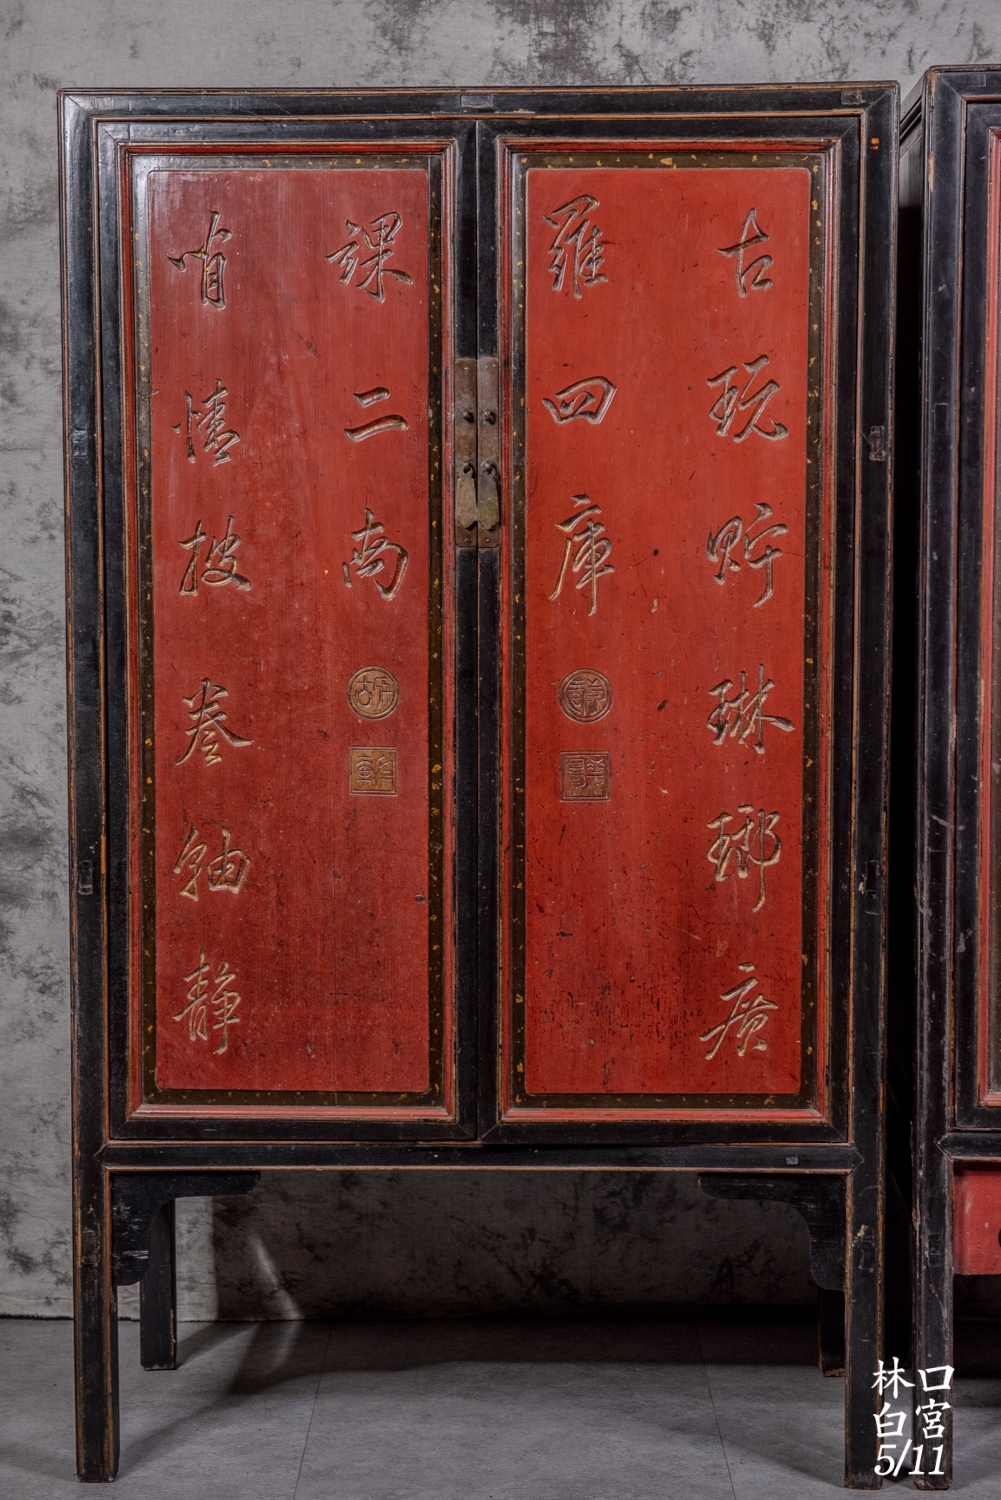 古玩貯琳瑯廣
羅四庫
閒情披卷軸靜
課二南
林口
白宮
5/11